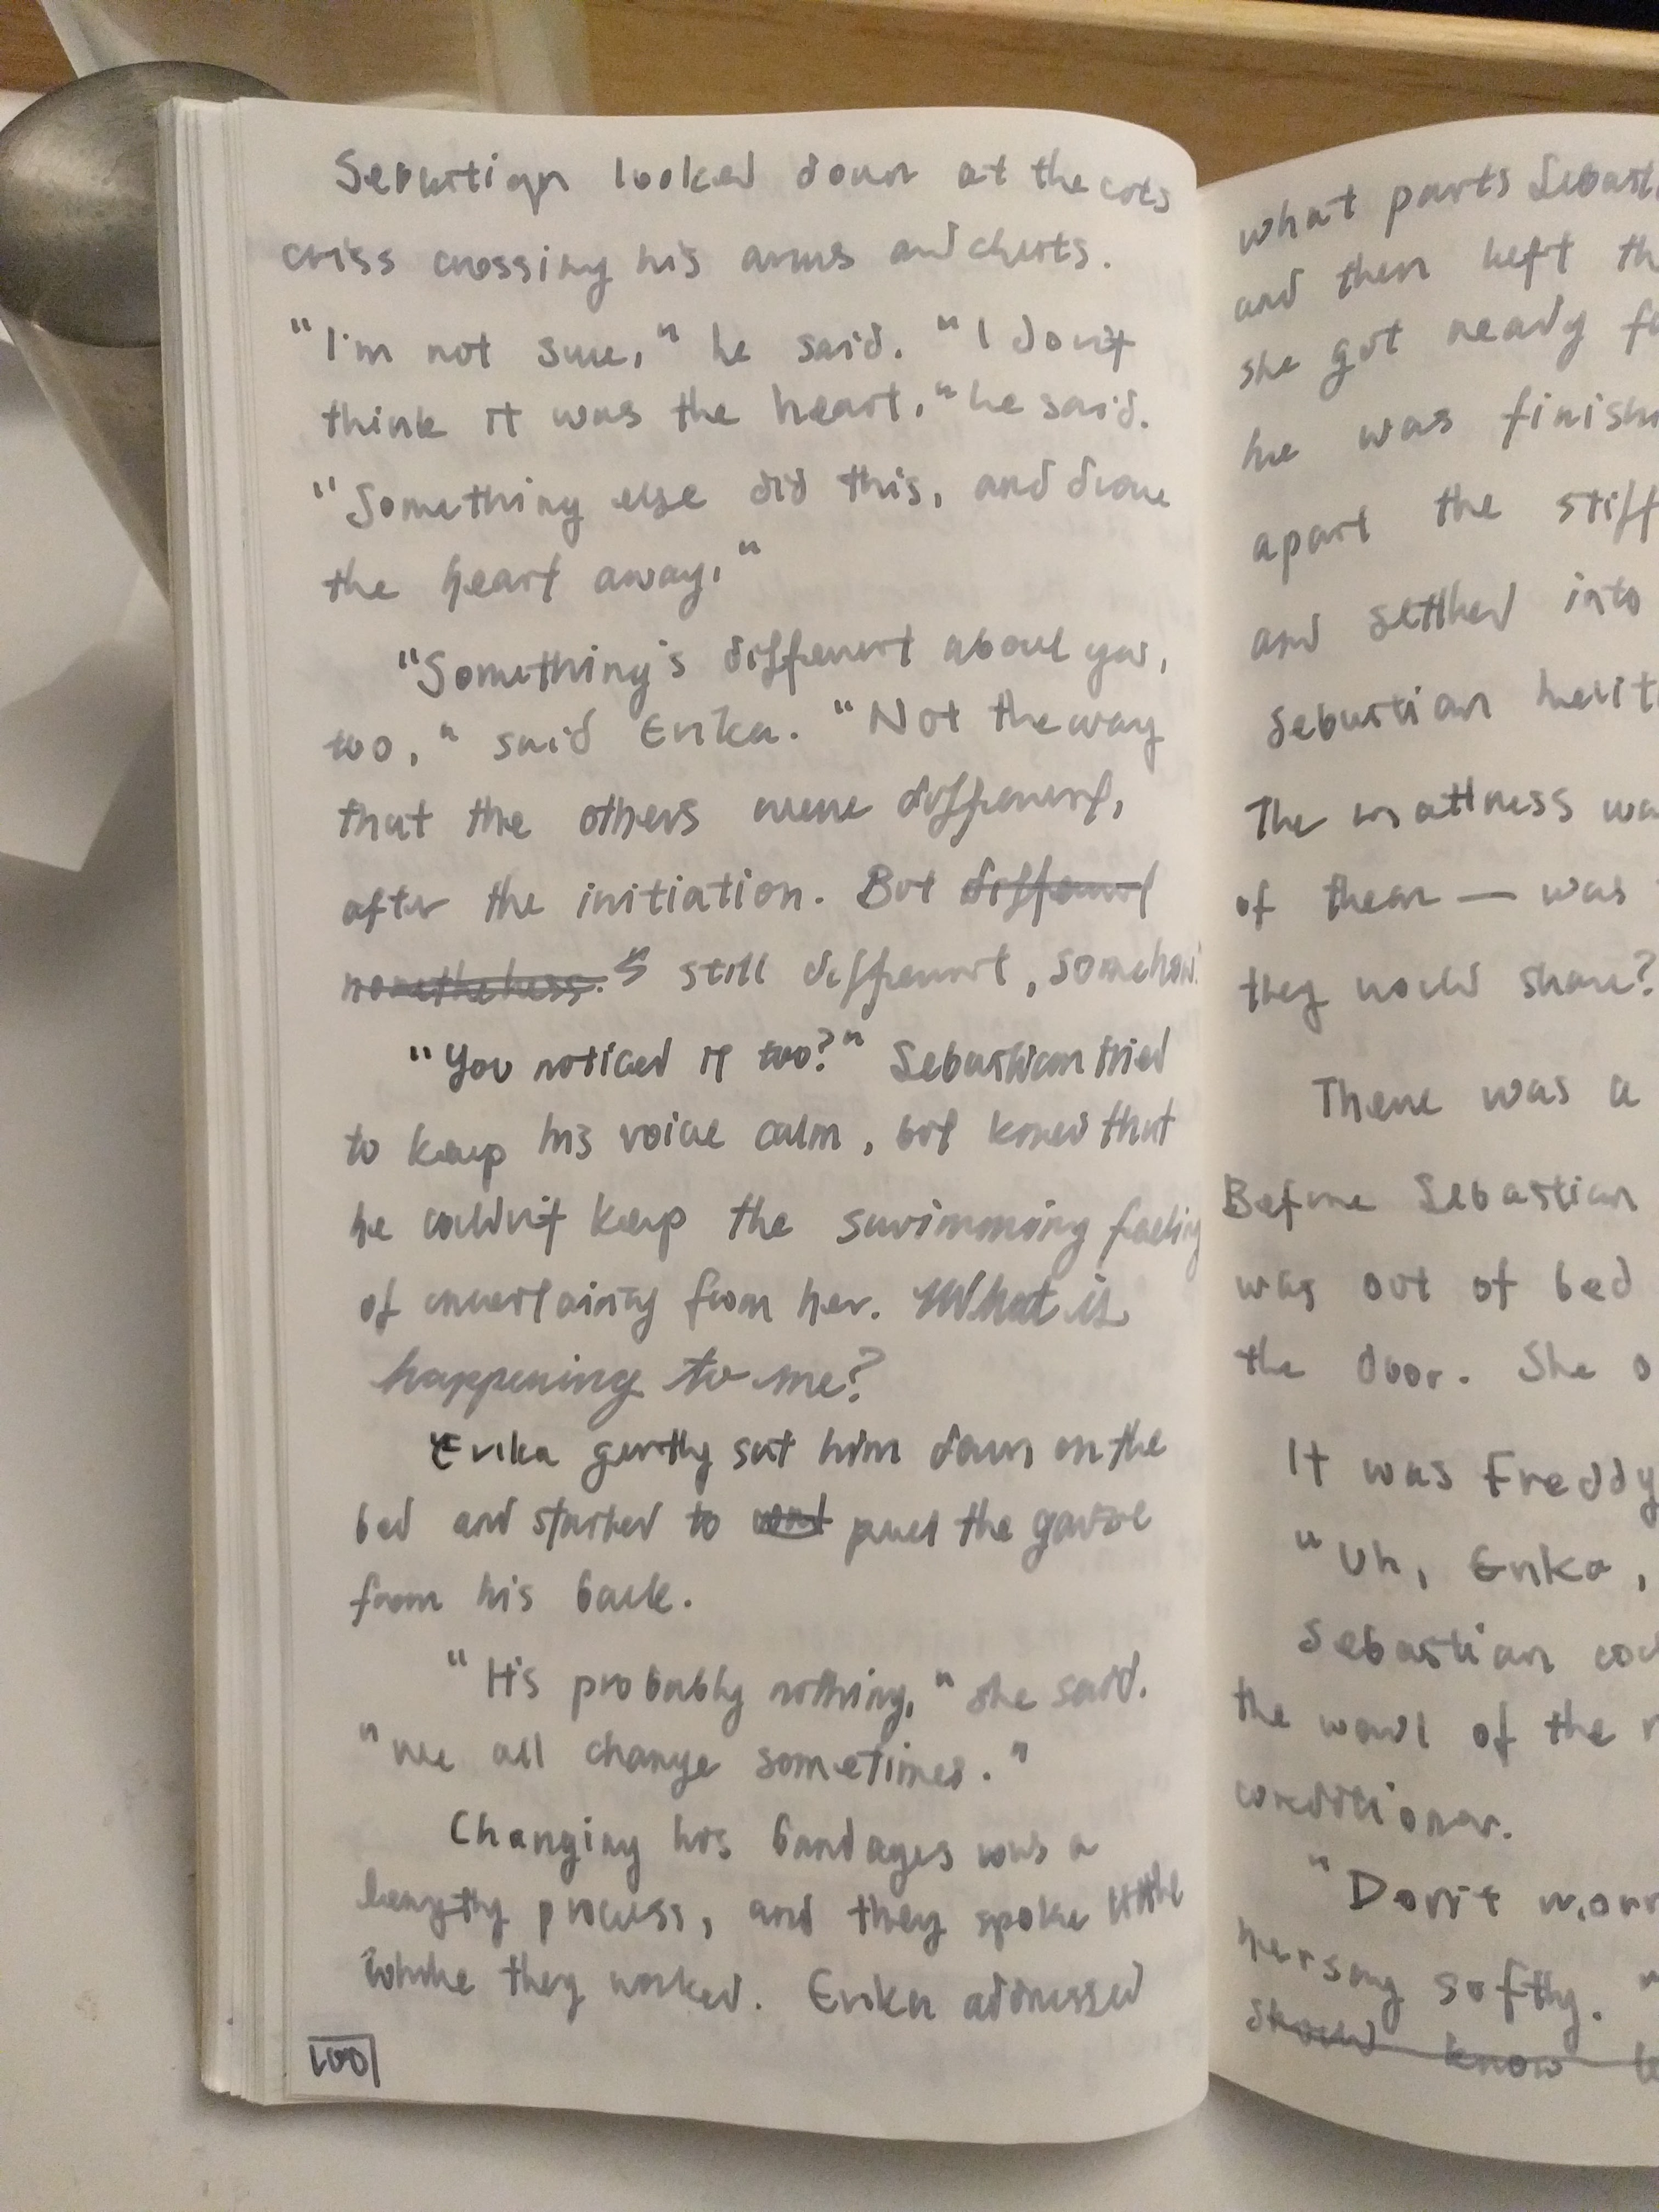 Sebastian looked down at the cuts
criss crossing his arms and chests.
"I'm not sure," he said. "I don't
think it was the heart," he said.
"Something else did this, and drove
the heart away."
"Something's different about you,
too," said Erika. "Not the way
that the others were different,
after the initiation. But different
nonetheless." still different, somehow."
"You noticed it too?" Sebastian tried
to keep his voice calm, but knew that
he couldn't keep the swimming feeling
of uncertainty from her. What is
happening to me?
Erika gently sat him down on the
bed and started to peel the gauze
from his back.
"It's probably nothing," she said.
"We all change sometimes."
Changing his bandages was a
lengthy process, and they spoke little
while they worked. Erika addressed
100
what parts
and then left
she got ready
he was
apart the
and settled into
Sebastian
The mattress
of them — was
they would share?
There was a
Before Sebastian
was out of bed
the door. She
It was Freddy
"Uh, Erika,
Sebastian
the wail of the
conditioner.
"Don't
her say softly.
should know